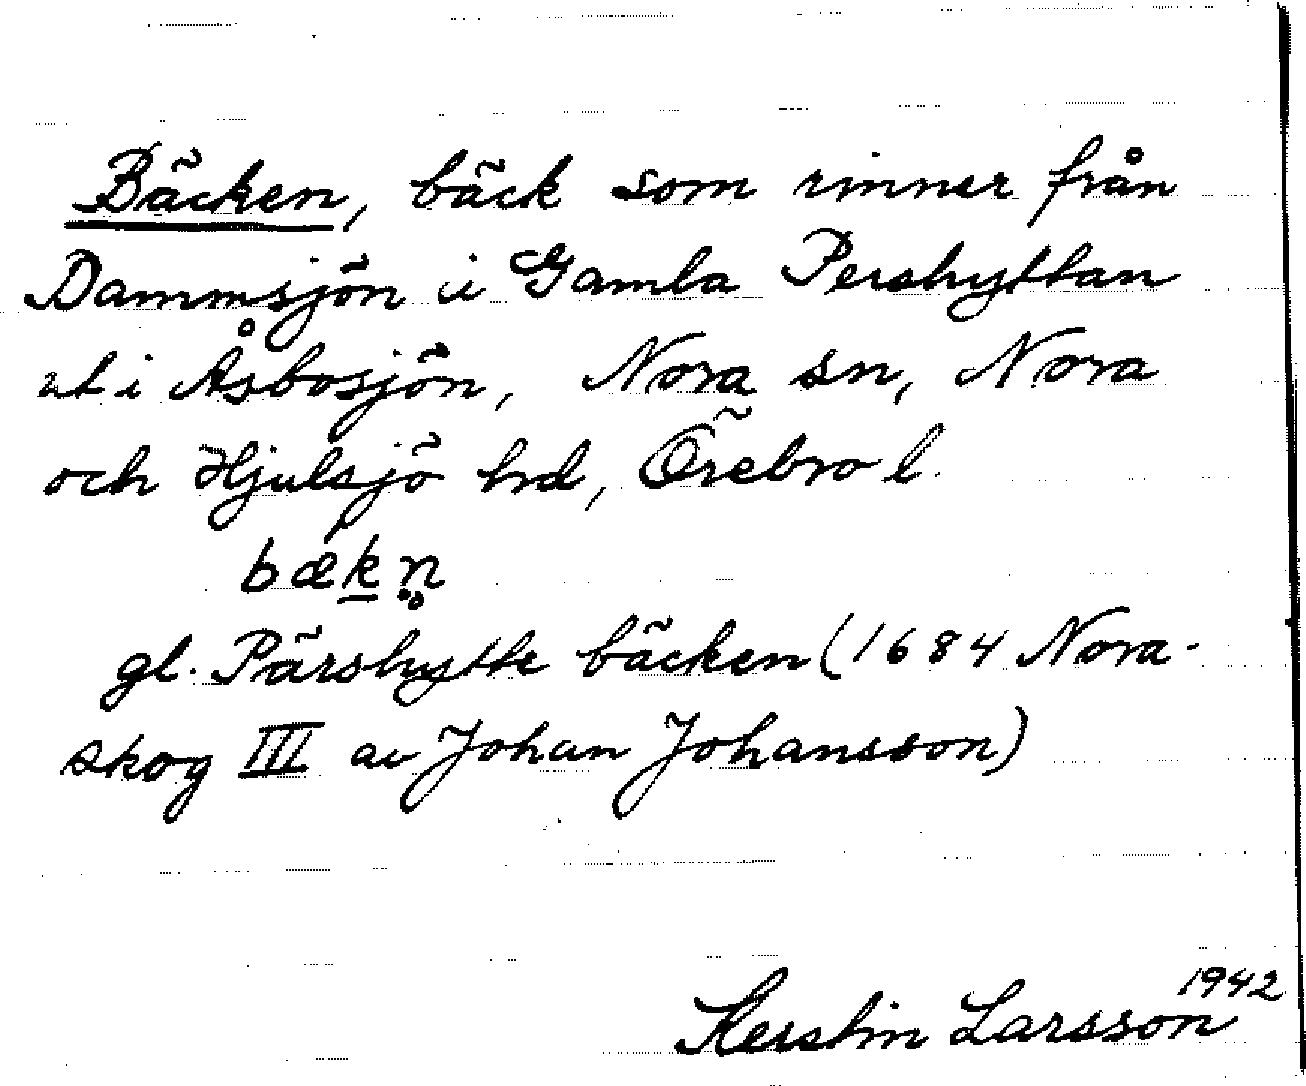 Bäcken, bäck som rinner från
Dammsjön i Gamla Pershyttan
ut i Åsbosjön, Nora sn, Nora
och Hjulsjö hd, Örebro l.
bækn̥
gl. Pärshytte bäcken (1684 Nora-
skog III av Johan Johansson)
1942
Kerstin Larsson